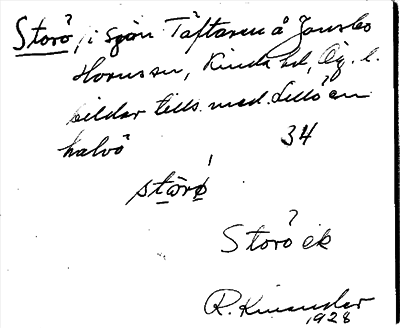 Storö, i sjön Täftaren å
Horns sn, Kinda hd, Ög. l.
bildar tills. med Lillö en
halvö 34
störö
Storö ek
R. Kinander
1928